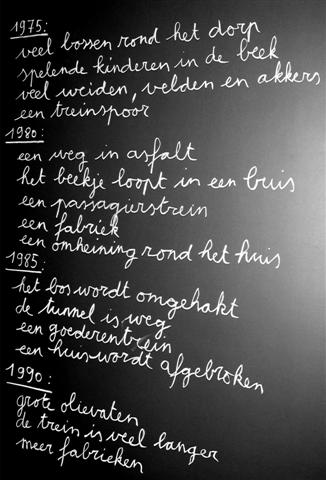 1975:
veel bossen rond het dorp
spelende kinderen in de beek
veel weiden, velden en akkers
een treinspoor
1980:
een weg in asfalt
het beekje loopt in een buis
een passagierstrein
een fabriek
een omheining rond het huis
1985:
het bos wordt omgehakt
de tunnel is weg
een goederentrein
een huis wordt afgebroken
1990:
grote olievaten
de trein is veel langer
meer fabrieken